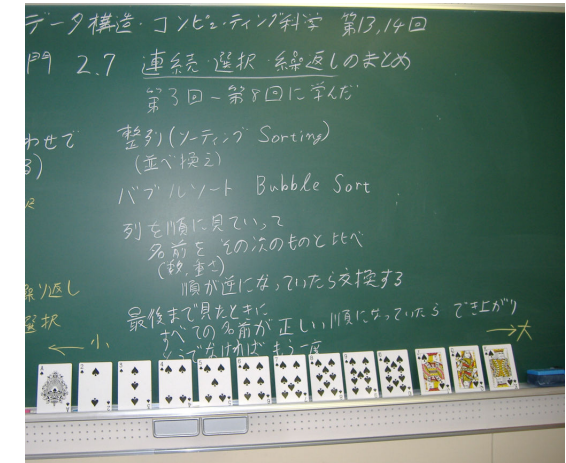 データ構造・コンピューティング科学 第13,14回
門 2.7 連続・選択・繰返しのまとめ
第3回～第8回に学んだ
わせで
整列(ソーティング Sorting)
(並べ換え)
バブルソート Bubble Sort
列を順に見ていって
名前を その次のものと比べ
順が逆になっていたら交換する
繰り返し
選択
最後まで見たときに
すべての名前が正しい順になっていたら でき上がり
そうでなければ もう一度
← 小
→ 大